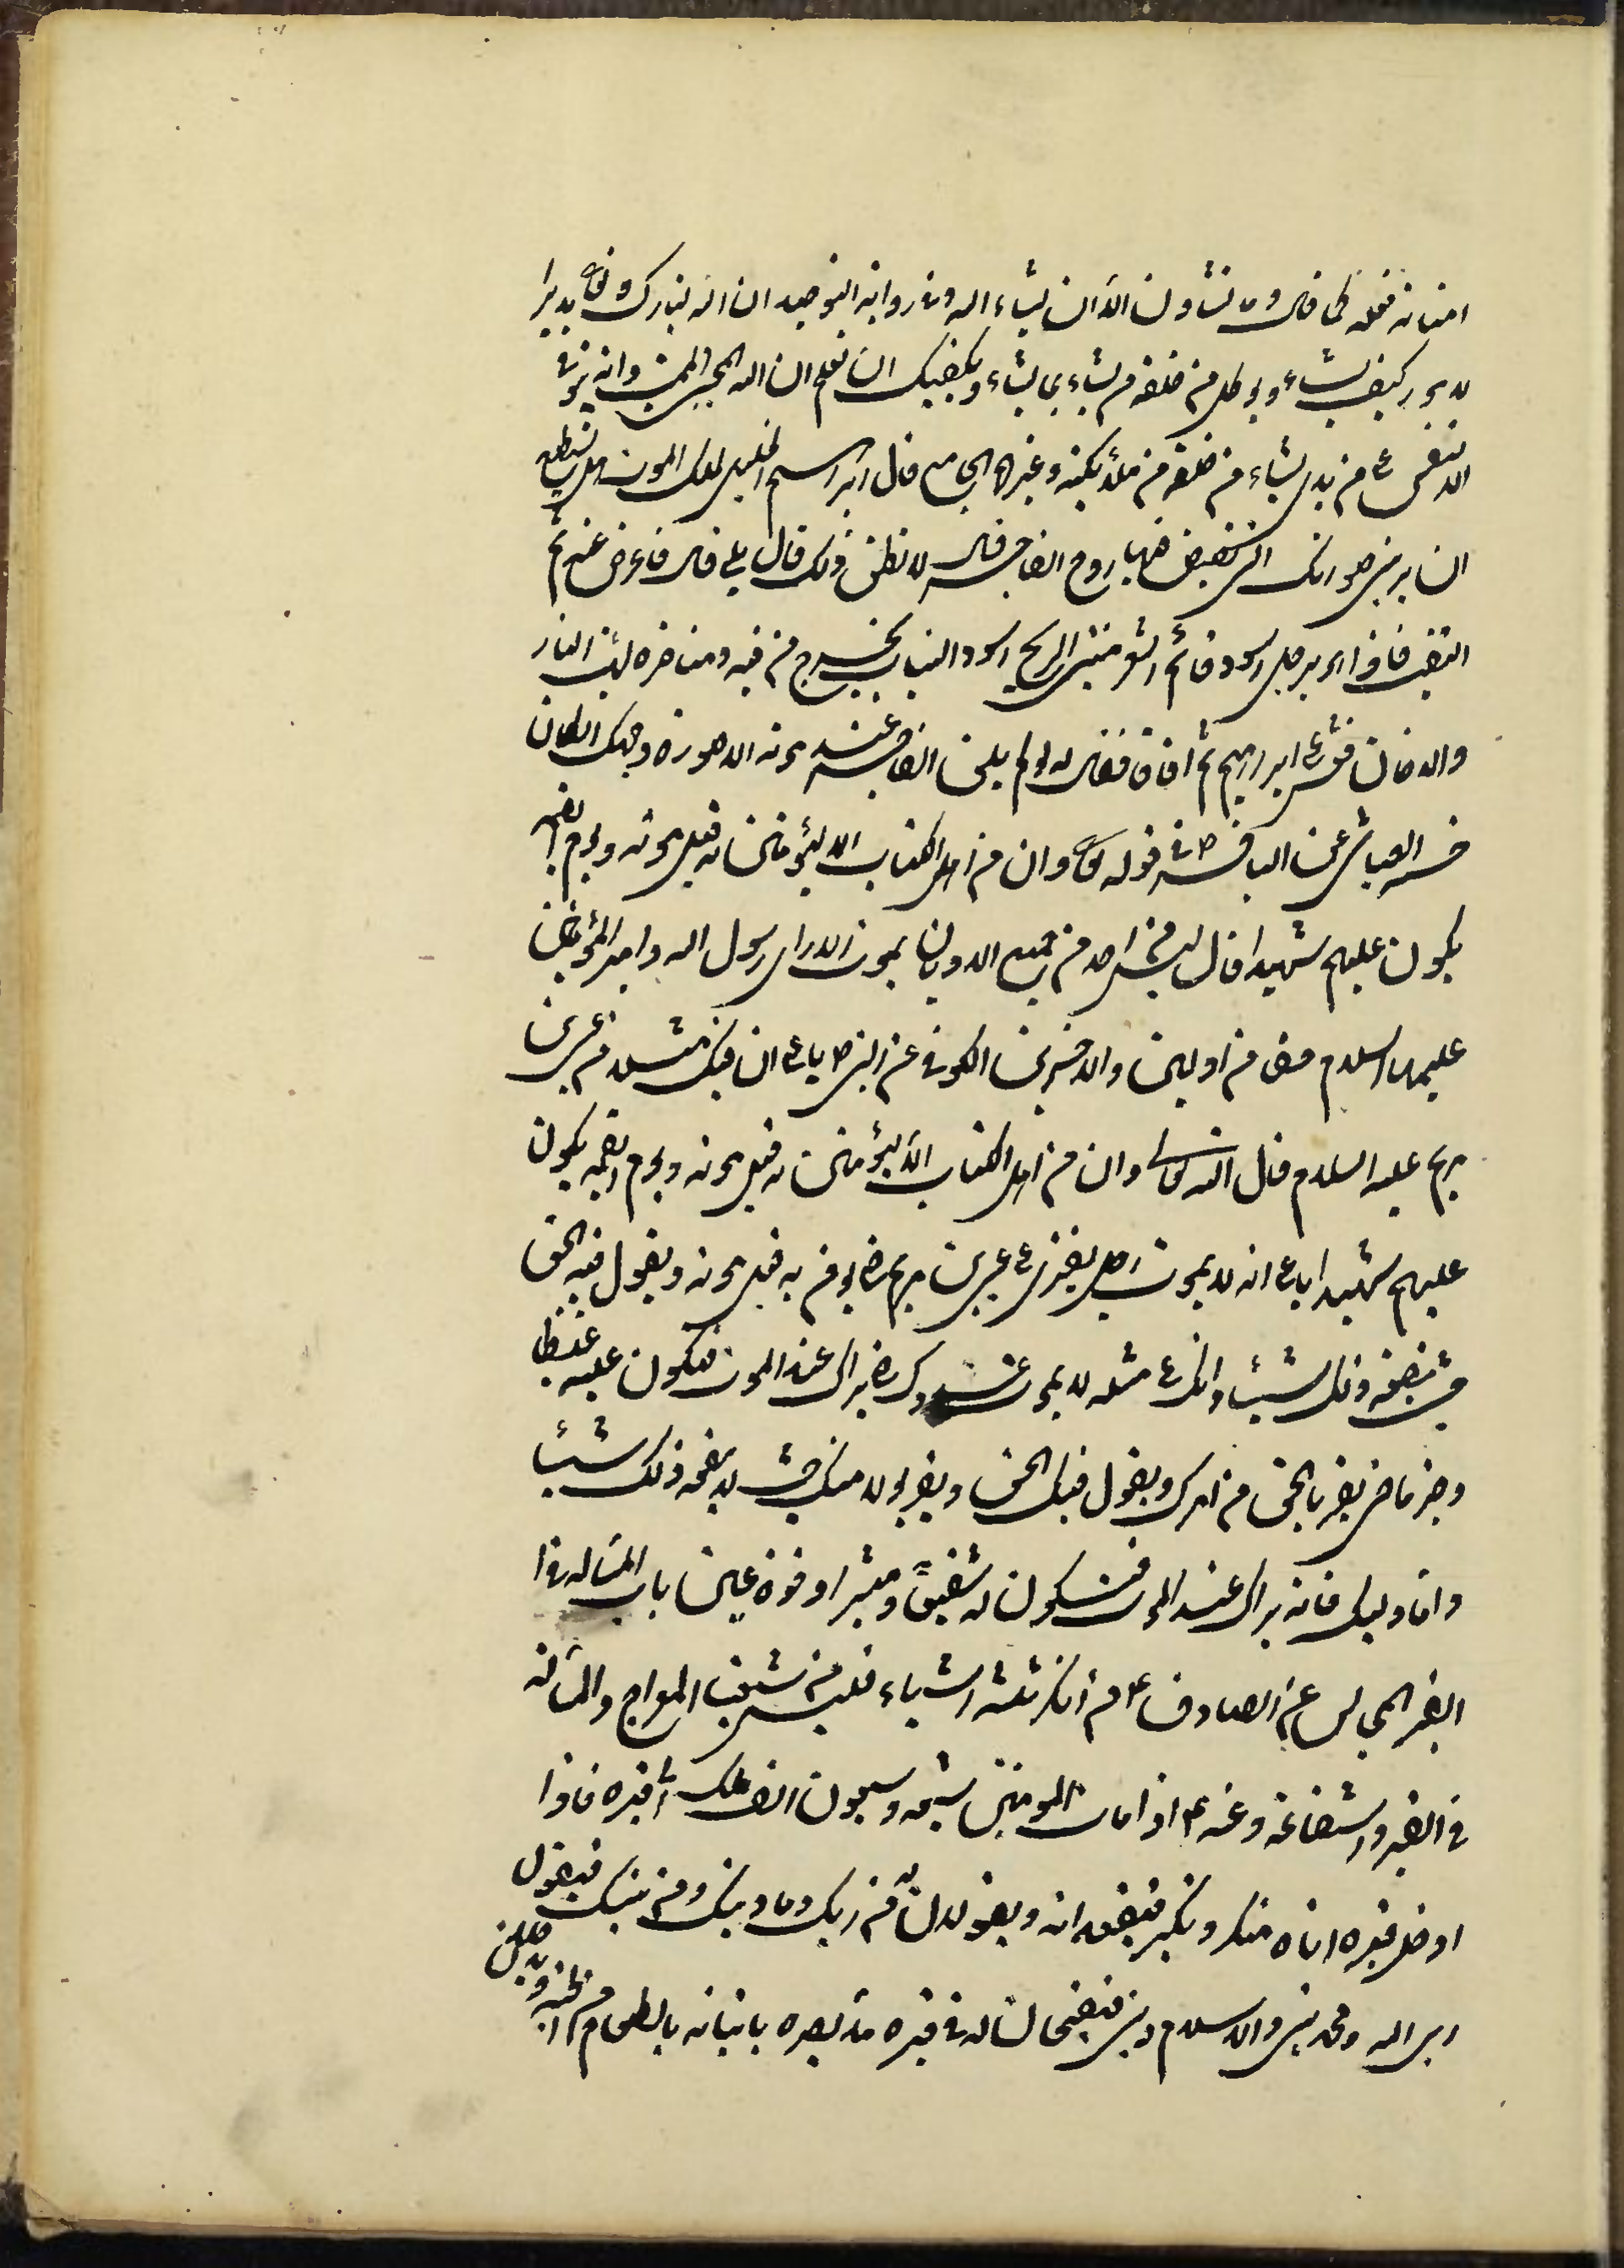 امنائه فعله كما قال وما تشاؤن الا ان يشاء الله وفى رواية التوحيد ان الله تبارك وتعالى يدبر
الامور كيف يشاء ويوكل من خلقه من يشاء بما يشاء ويكفيك ان تعلم ان الله المحيى المميت وانه يتوفى
الانفس على يدى من يشاء من خلقه من ملائكته وغيرهم الجامع قال ابراهيم الخليل لملك الموت هل تستطيع
ان ترينى صورتك التى تقبض فيها روح الفاجر قال لا تطيق ذلك قال بلى قال فاعرض عنى ثم
التفت فاذا هو برجل اسود قائم الشعر منتن الريح اسود الثياب يخرج من فيه ومناخره لهب النار
والدخان فغشى على ابراهيم ثم افاق فقال لو لم يلق الفاجر عند موته الا صورة وجهك لكان
حسبه العياشى عن الباقر ع فى قوله تعالى وان من اهل الكتاب الا ليؤمنن به قبل موته ويوم القيمه
يكون عليهم شهيدا قال ليس من احد من جميع الاديان يموت الا راى رسول الله وامير المؤمنين
عليهما السلام حقا من الاولين والاخرين الكوفى عن النبى ص يا على ان فيك مثلا من عيسى بن
مريم عليه السلام قال الله تعالى وان من اهل الكتاب الا ليؤمنن به قبل موته ويوم القيمه يكون
عليهم شهيدا يا على انه لا يموت رجل يفترى على عيسى بن مريم حتى يؤمن به قبل موته ويقول فيه الحق
حيث لا ينفعه ذلك شيئا وانك على مثله لا يموت عدوك حتى يراك عند الموت فتكون عليه غيظا
وحزنا حتى يقر بالحق من امرك ويقول فيك الحق ويقر بولايتك حيث لا ينفعه ذلك شيئا
واما وليك فانه يراك عند الموت فتكون له شفيعا ومبشرا وقرة عين باب المسائله فى
القبر المجالس عن الصادق ع من انكر ثلثة اشياء فليس من شيعتنا المعراج والمسائله
فى القبر والشفاعة وعنه ع اذا مات المؤمن شيعه سبعون الف ملك الى قبره فاذا
ادخل قبره اتاه منكر ونكير فيقعدانه ويقولان له من ربك وما دينك ومن نبيك فيقول
ربى الله ومحمد نبيى والاسلام دينى فيفسحان له فى قبره مد بصره ياتيانه بالطعام من الجنة ويدخلان